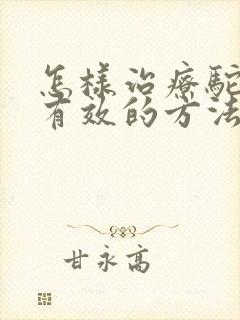 怎樣治療駝
有效的方法
甘永高